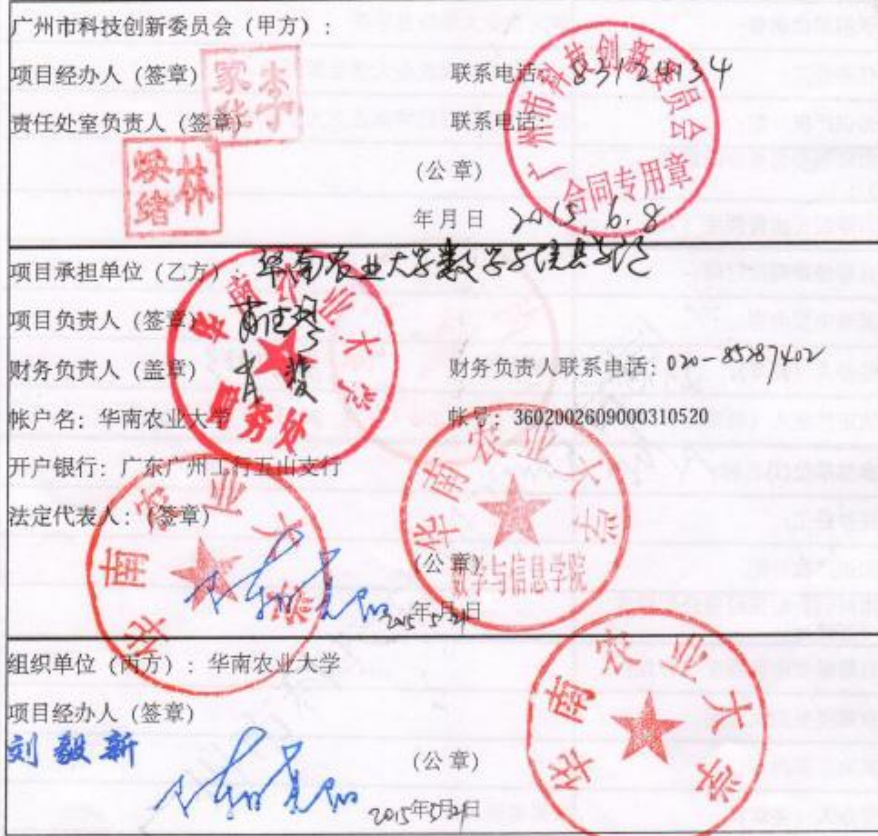 广州市科技创新委员会（甲方）：
项目经办人（签章）
联系电话：83124134
责任处室负责人（签章）
联系电话：
广州市科技创新委员会
合同专用章
林焕绪
（公章）
年月日 2015.6.8
项目承担单位（乙方）：华南农业大学数学与信息学院
项目负责人（签章）
财务负责人（盖章）
财务负责人联系电话：020-85287402
华南农业大学
财务处
帐户名：华南农业大学
帐号：3602002609000310520
开户银行：广东广州工行五山支行
法定代表人：（签章）
华南农业大学
华南农业大学
数学与信息学院
（公章）
年月日
组织单位（丙方）：华南农业大学
项目经办人（签章）
刘毅新
（公章）
年月日
华南农业大学